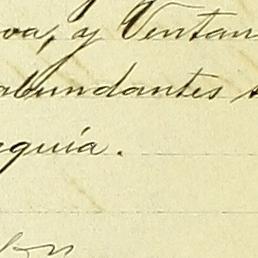 va, y Ventan
abundantes s
equia.